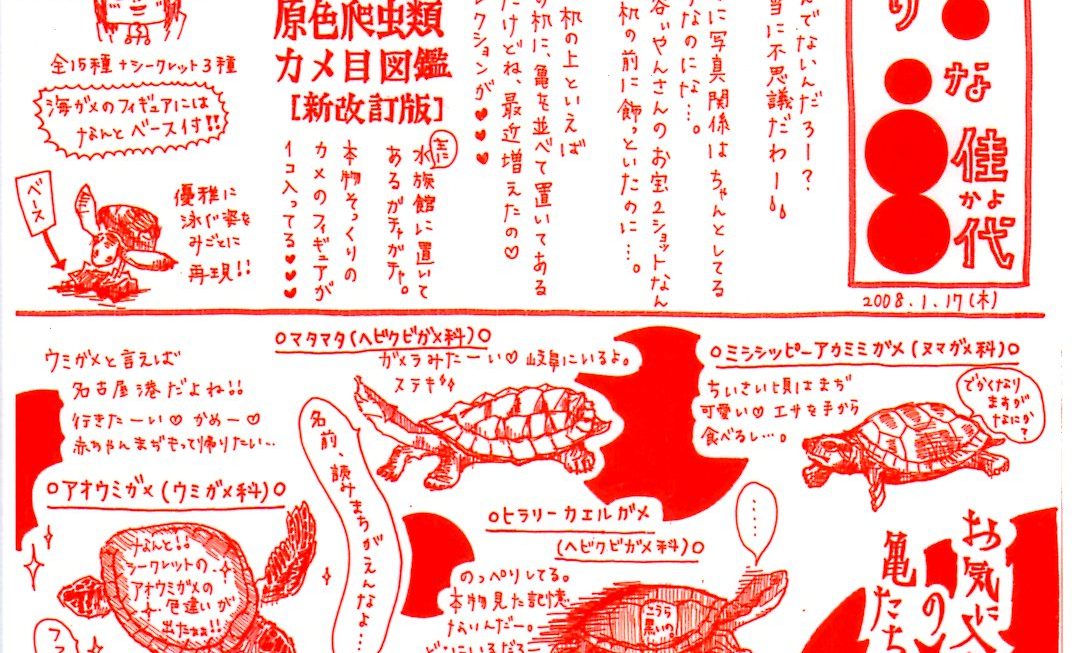 り
な
佳
かよ
代
2008.1.17(木)
んでないんだろー?
当に不思議だわー
に写真関係はちゃんとしてる
なのにな…。
谷ぃやんさんのお宝2ショットなん
机の前に飾っといたのに…。
机の上といえば
の机に、亀を並べて置いてある
たけどね、最近増えたの♡
レクションが♥♥♥
原色爬虫類
カメ目図鑑
[新改訂版]
水族館に置いて
あるガチャガチャ。
本物そっくりの
カメのフィギュアが
1コ入ってる♥♥♥
全15種+シークレット3種
海ガメのフィギュアには
なんとベース付!!
ベース
優雅に
泳ぐ姿を
みごとに
再現!!
○ミシシッピーアカミミガメ(ヌマガメ科)○
ちいさい頃はまぢ
可愛い♡エサを手から
食べるし…。
でかくなり
ますが
なにか?
○マタマタ(ヘビクビガメ科)○
ガメラみたーい♡岐阜にいるよ。
ステキ
名前、読みまちがえんなよ…
ウミガメと言えば
名古屋港だよね!!
行きたーい♡かめー♡
赤ちゃんまぢもって帰りたい…
○アオウミガメ(ウミガメ科)○
なんと!!
シークレットの
アオウミガメの
色違いが
出たぁぁ!!
○ヒラリーカエルガメ
(ヘビクビガメ科)○
のっぺりしてる。
本物見た記憶
ないんだー。
どこにいるだろ
……
こうら
黒いの。
お気に入
の
亀たち